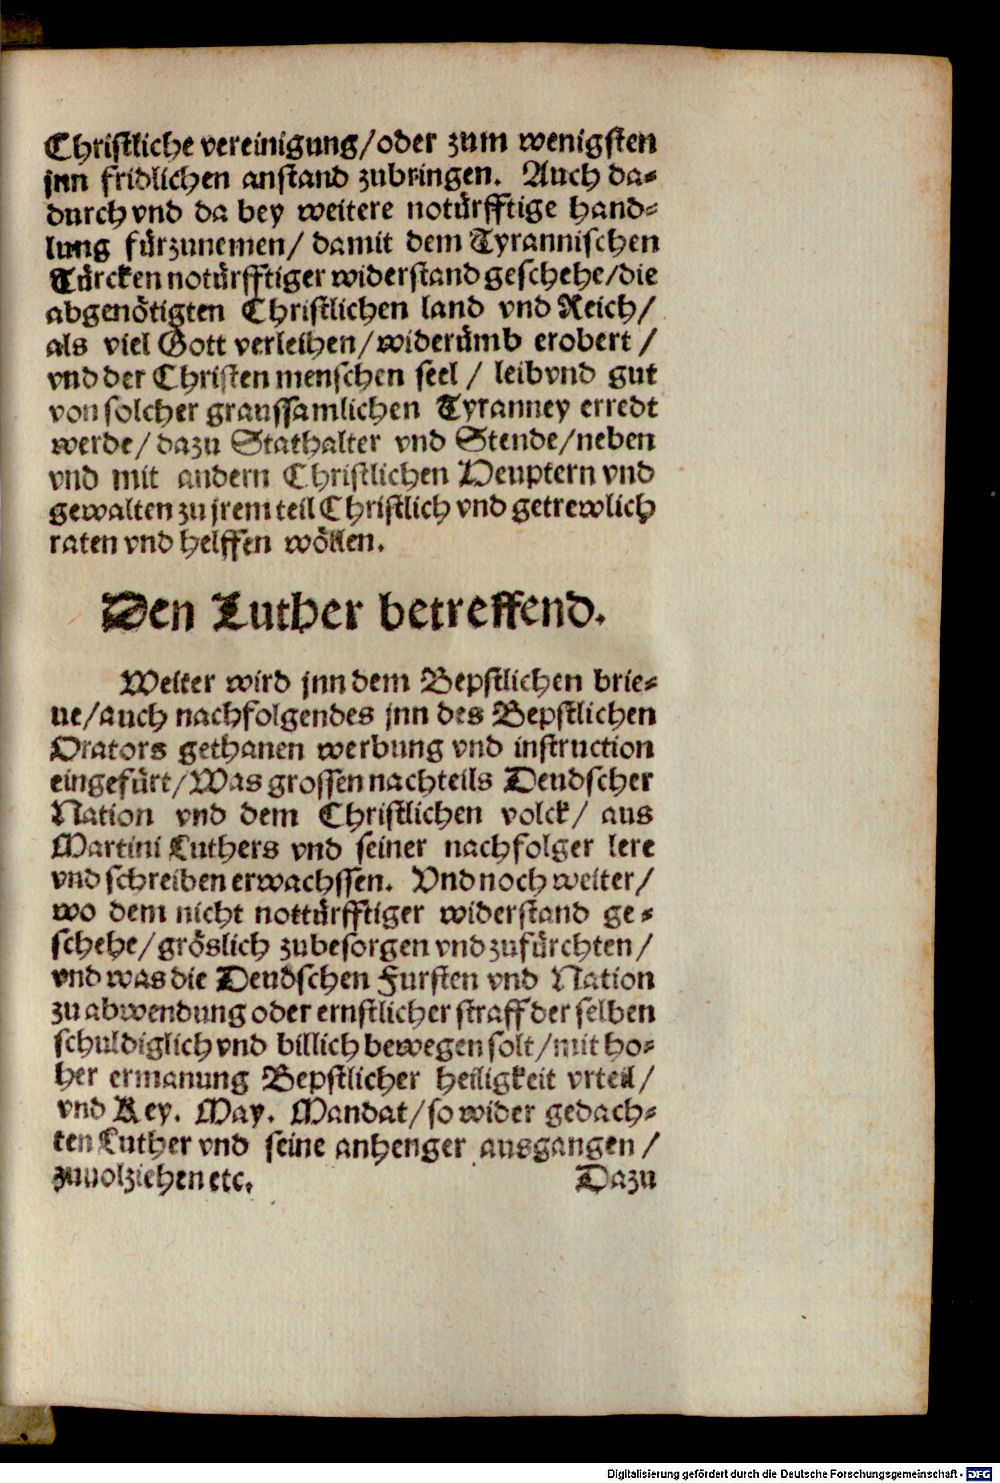 Christliche vereinigung/oder zum wenigsten
jnn fridlichen anstand zubringen. Auch da-
durch vnd da bey weitere notürfftige hand-
lung fürzunemen/ damit dem Tyrannischen
Türcken notürfftiger widerstand geschehe/die
abgenötigten Christlichen land vnd Reich/
als viel Gott verleihen/widerümb erobert/
vnd der Christen menschen seel / leib vnd gut
von solcher graussamlichen Tyranney erredt
werde/ dazu Stathalter vnd Stende/neben
vnd mit andern Christlichen Heuptern vnd
gewalten zu jrem teil Christlich vnd getrewlich
raten vnd helffen wöllen.
Den Luther betreffend.
Weiter wird jnn dem Bepstlichen brie-
ue/auch nachfolgendes jnn des Bepstlichen
Orators gethanen werbung vnd instruction
eingefürt/Was grossen nachteils Deudscher
Nation vnd dem Christlichen volck/ aus
Martini Luthers vnd seiner nachfolger lere
vnd schreiben erwachssen. Vnd noch weiter/
wo dem nicht nottürfftiger widerstand ge-
schehe/gröslich zubesorgen vnd zufürchten/
vnd was die Deudschen Fursten vnd Nation
zu abwendung oder ernstlicher straff der selben
schuldiglich vnd billich bewegen solt/mit ho-
her ermanung Bepstlicher heiligkeit vrteil/
vnd Key. May. Mandat/so wider gedach-
ten Luther vnd seine anhenger ausgangen/
zuuolziehen etc. Dazu
Digitalisierung gefördert durch die Deutsche Forschungsgemeinschaft - DFG